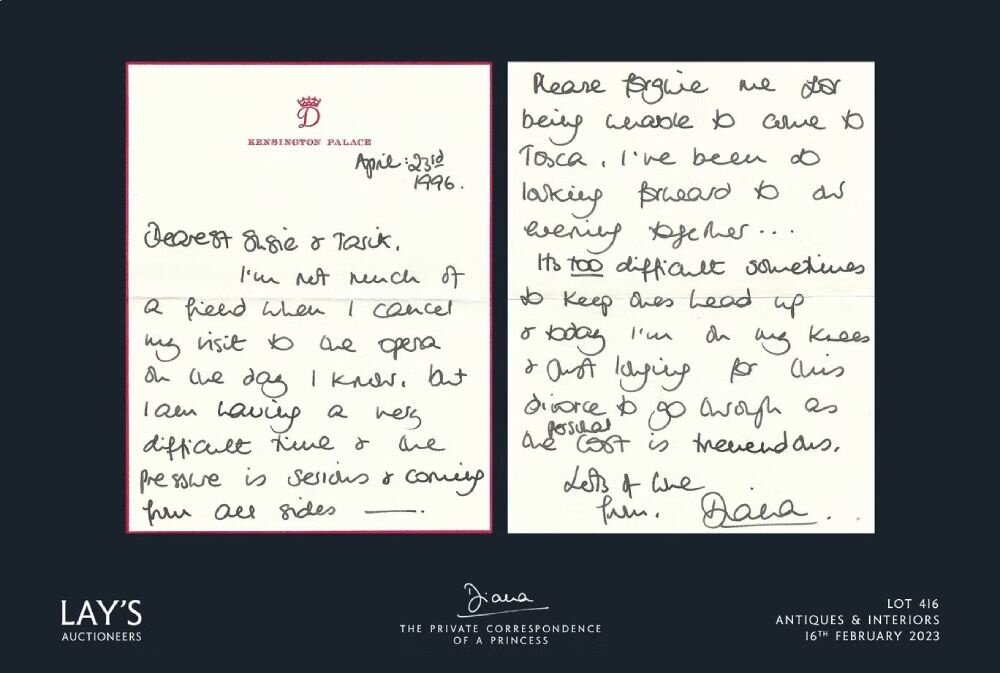 D
KENSINGTON PALACE
April: 23rd
1996.
Dearest Susie & Tarik,
I'm not much of
a friend when I cancel
my visit to the opera
on the day I know, but
I am having a very
difficult time & the
pressure is serious & coming
from all sides —.
Please forgive me for
being unable to come to
Tosca. I've been so
looking forward to our
evening together...
Its too difficult sometimes
to keep ones head up
& today I'm on my knees
& just longing for this
divorce to go through as
the personal cost is tremendous.
Lots of love
from, Diana.
LAY'S
AUCTIONEERS
Diana
THE PRIVATE CORRESPONDENCE
OF A PRINCESS
LOT 416
ANTIQUES & INTERIORS
16TH FEBRUARY 2023